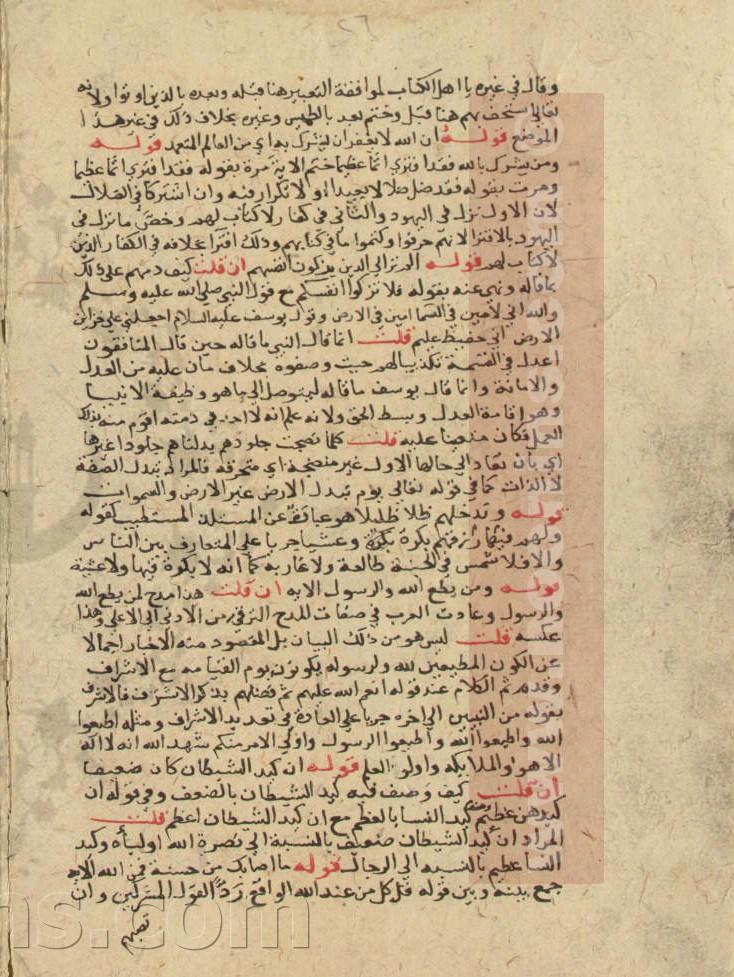 وقال في غيره يا اهل الكتاب لموافقة التعبير هنا قبله وبعده بالذين اوتوا ولانه
تعالى استخف بهم هنا قبل وختم بعد بالطمس وغيره بخلاف ذلك في غير هذا
الموضع قوله ان الله لا يغفر ان يشرك به اي من العالم المتعمد قوله
ومن يشرك بالله فقد افترى اثما عظيما ختم الاية مرة بقوله فقد افترى اثما عظيما
ومرة بقوله فقد ضل ضلالا بعيدا ولا تكرار فيه وان اشتركا في الضلال
لان الاول نزل في اليهود والثاني في كفار لا كتاب لهم وخص ما نزل في
اليهود بالافترا لانهم حرفوا وكتموا ما في كتابهم وذلك افترا بخلافه في الكفار الذين
لا كتاب لهم قوله الم تر الى الذين يزكون انفسهم ان قلت كيف ذمهم على ذلك
بما قاله ونهى عنه بقوله فلا تزكوا انفسكم مع قول النبي صلى الله عليه وسلم
والله اني لامين في السما امين في الارض وقول يوسف عليه السلام اجعلني على خزاين
الارض اني حفيظ عليم قلت انما قال النبي ما قاله حين قال المنافقون
اعدل في القسمة تكذيبا لهم حيث وصفوه بخلاف ما كان عليه من العدل
والامانة وانما قال يوسف ما قاله ليتوصل الى ما هو وظيفة الانبيا
وهو اقامة العدل وبسط الحق ولانه علم انه لا احد في زمنه اقوم منه بذلك
العمل فكان متعينا عليه قلت كلما نضجت جلودهم بدلناهم جلودا غيرها
اي بان تعاد الى حالها الاول غير منضجة اي محترقة فالمراد تبدل الصفة
لا الذات كما في قوله تعالى يوم تبدل الارض غير الارض والسموات
قوله وندخلهم ظلا ظليلا هو عبارة عن المستلذ المستطيب كقوله
ولهم فيها رزقهم بكرة وعشيا جريا على المتعارف بين الناس
والا فلا شمس في الجنة طالعة ولا غاربة كما انه لا بكرة فيها ولا عشية
قوله ومن يطع الله والرسول الاية ان قلت هذا مدح لمن يطع الله
والرسول وعادت العرب في صفات المدح الترقي من الادنى الى الاعلى وهذا
عكسه قلت ليس هو من ذلك البيان بل المقصود منه الاخبار اجمالا
عن الكون المطيعين لله ولرسوله يكونون يوم القيامة مع الاشراف
وقد تم الكلام عند قوله انعم الله عليهم ثم فصلهم بذكر الاشرف فالاشرف
بقوله من النبيين الى اخره جريا على العادة في تعديد الاشراف ومثله اطيعوا
الله واطيعوا الله واطيعوا الرسول واولي الامر منكم شهد الله انه لا اله
الا هو والملايكة واولو العلم قوله ان كيد الشيطان كان ضعيفا
ان قلت كيف وصف فيه كيد الشيطان بالضعف وفي قوله ان
كيدهن عظيم كيد النسا بالعظم مع ان كيد الشيطان اعظم قلت
المراد ان كيد الشيطان ضعيف بالنسبة الى نصرة الله اولياه وكيد
النسا عظيم بالنسبه الى الرجال قوله ما اصابك من حسنة فمن الله الايه
جمع بينه وبين قوله قل كل من عند الله الواقع ردا لقول المشركين وان
تصبهم